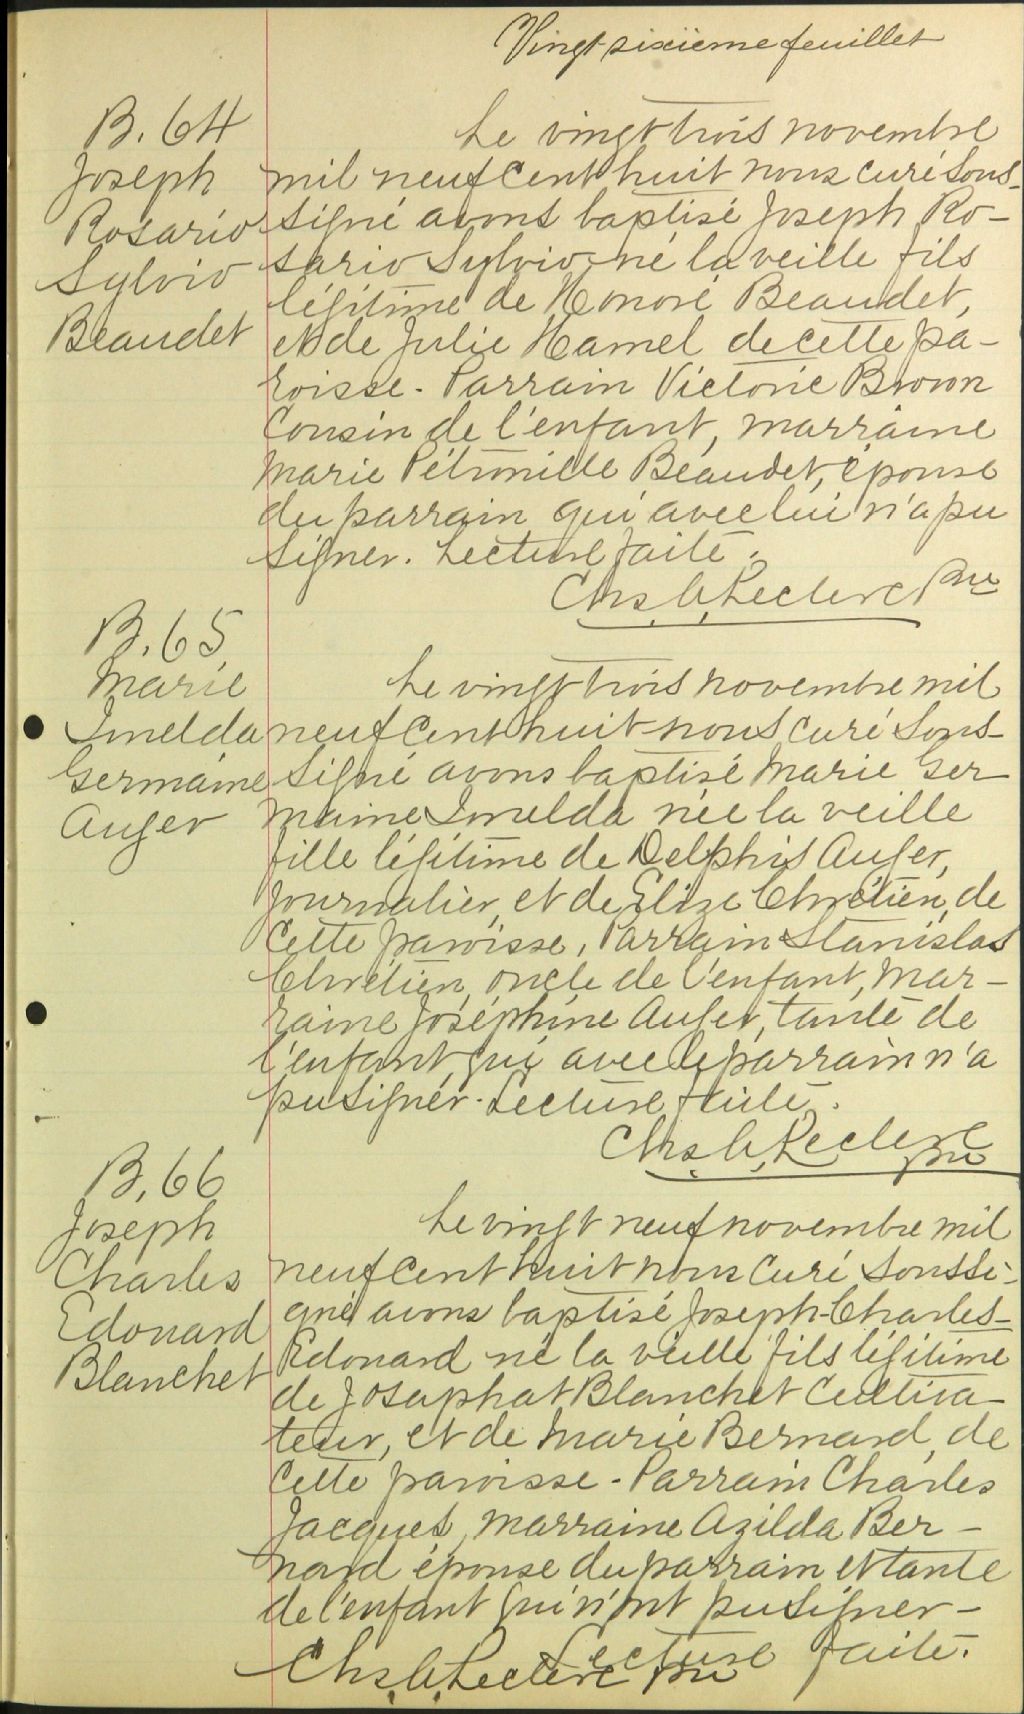 Vingt sixième feuillet
B. 64
Joseph
Rosario
Sylvio
Beaudet
Le vingt trois novembre
mil neuf cent huit nous curé sous-
signé avons baptisé Joseph Ro-
sario Sylvio né la veille fils
légitime de Honoré Beaudet,
et de Julie Hamel de cette pa-
roisse. Parrain Victorie Brown
Cousin de l'enfant, marraine
Marie Pétronille Beaudet, épouse
du parrain qui avec lui n'a pu
signer. Lecture faite.
Chs. Leclerc Ptre
B. 65
Marie
Imelda
Germaine
Auger
Le vingt trois novembre mil
neuf cent huit nous curé sous-
signé avons baptisé Marie Ger
maine Imelda née la veille
fille légitime de Delphis Auger,
journalier, et de Elize Chrétien, de
cette paroisse, Parrain Stanislas
Chrétien, oncle de l'enfant, mar-
raine Joséphine Auger, tante de
l'enfant, qui avec le parrain n'a
pu signer. Lecture faite.
Chs. Leclerc
ptre
B. 66
Joseph
Charles
Edouard
Blanchet
Le vingt neuf novembre mil
neuf cent huit nous curé soussi-
gné avons baptisé Joseph-Charles-
Edouard né la veille fils légitime
de Josaphat Blanchet Cultiva-
teur, et de Marie Bernard, de
cette paroisse - Parrain Charles
Jacques, marraine Azilda Ber-
nard épouse du parrain et tante
de l'enfant qui n'ont pu signer -
Lecture faite.
Chs. Leclerc ptre